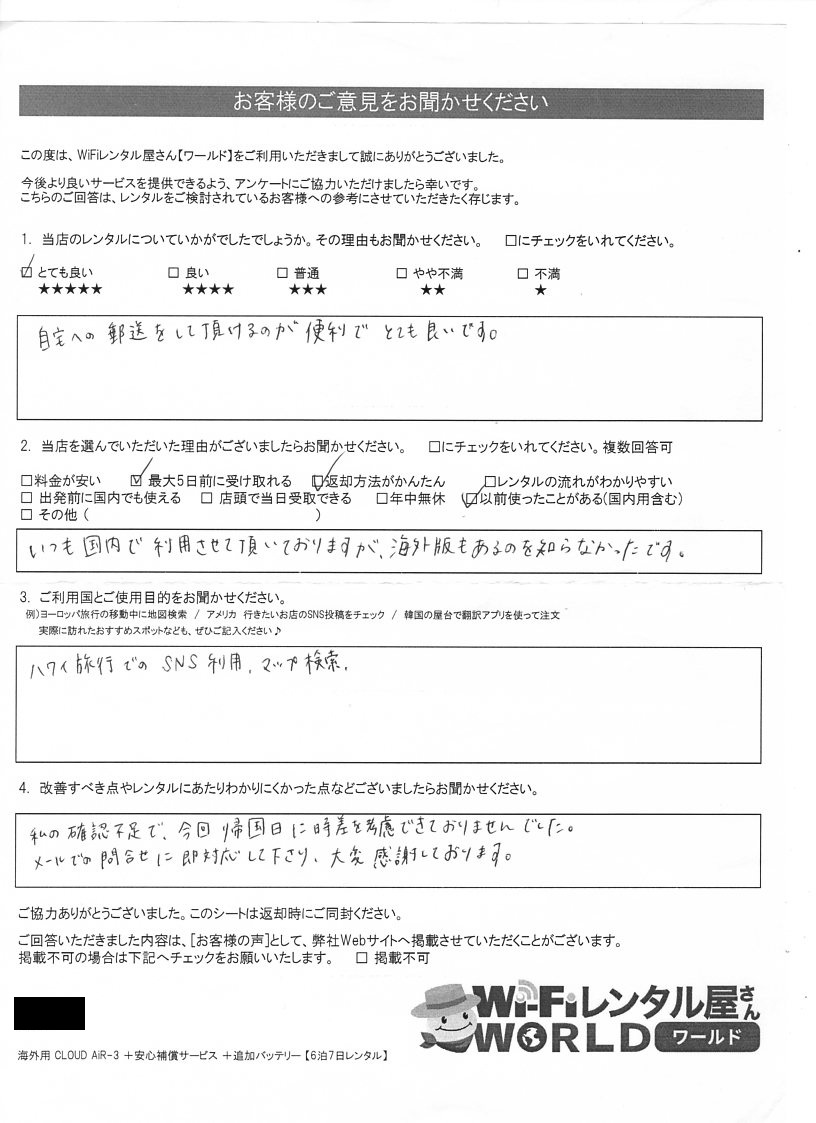 お客様のご意見をお聞かせください
この度は、WiFiレンタル屋さん【ワールド】をご利用いただきまして誠にありがとうございました。
今後より良いサービスを提供できるよう、アンケートにご協力いただけましたら幸いです。
こちらのご回答は、レンタルをご検討されているお客様への参考にさせていただきたく存じます。
1. 当店のレンタルについていかがでしたでしょうか。その理由もお聞かせください。 □にチェックをいれてください。
☑ とても良い □ 良い □ 普通 □ やや不満 □ 不満
★★★★★ ★★★★ ★★★ ★★ ★
自宅への郵送をして頂けるのが便利でとても良いです。
2. 当店を選んでいただいた理由がございましたらお聞かせください。 □にチェックをいれてください。複数回答可
□料金が安い ☑ 最大5日前に受け取れる ☑返却方法がかんたん □レンタルの流れがわかりやすい
□ 出発前に国内でも使える □ 店頭で当日受取できる □年中無休 ☑以前使ったことがある(国内用含む)
□ その他 ( )
いつも国内で利用させて頂いておりますが、海外版もあるのを知らなかったです。
3. ご利用国とご使用目的をお聞かせください。
例)ヨーロッパ旅行の移動中に地図検索 / アメリカ 行きたいお店のSNS投稿をチェック / 韓国の屋台で翻訳アプリを使って注文
実際に訪れたおすすめスポットなども、ぜひご記入ください♪
ハワイ旅行での SNS 利用、マップ検索、
4. 改善すべき点やレンタルにあたりわかりにくかった点などございましたらお聞かせください。
私の確認不足で、今回帰国日に時差を考慮できておりませんでした。
メールでの問合せに即対応して下さり、大変感謝しております。
ご協力ありがとうございました。このシートは返却時にご同封ください。
ご回答いただきました内容は、[お客様の声]として、弊社Webサイトへ掲載させていただくことがございます。
掲載不可の場合は下記へチェックをお願いいたします。 □ 掲載不可
Wi-Fiレンタル屋さん
WORLD ワールド
海外用 CLOUD AiR-3 +安心補償サービス +追加バッテリー【6泊7日レンタル】